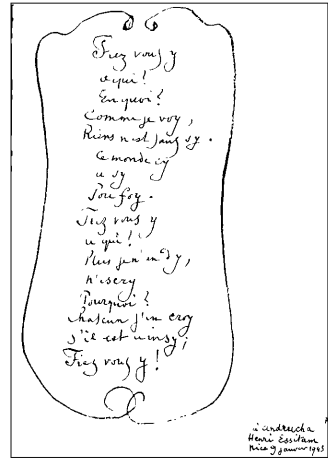 Fiez vous y
a qui?
En quoi?
Comme je voy,
Riens n'est sans sy.
Ce monde cy
a sy
Pou foy.
Fiez vous y
a qui?
Plus je n'en dy,
n'escry
Pourquoi?
chascun j'en croy
s'il est ainsy;
Fiez vous y!
à andrucha
Henri Essitam
Nice 9 janvier 1943